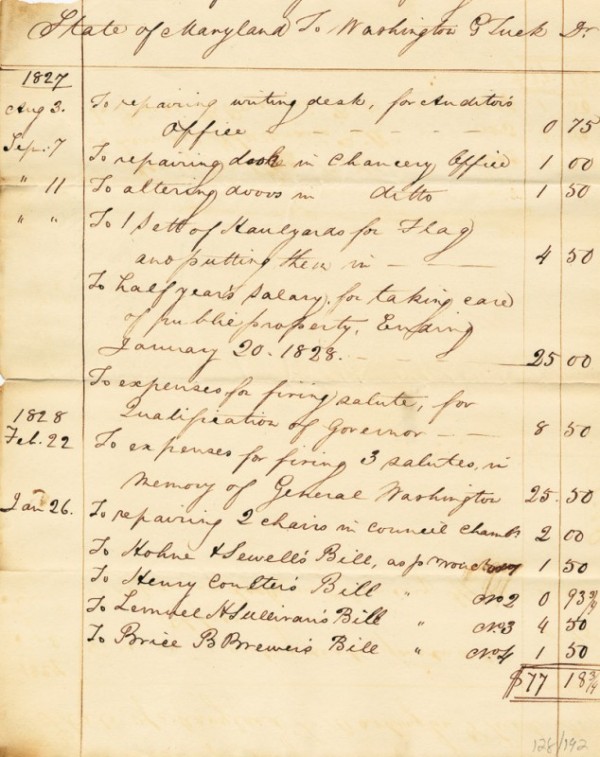 State of Maryland To Washington G Tuck Dr
1827
Aug 3. To repairing writing desk, for Auditor's
Office - - - - - - 0 75
Sep. 7 To repairing desk in Chancery Office 1 00
" 11 To altering doors in ditto 1 50
" " To 1 Sett of Haulyards for Flag
and putting them in - - - 4 50
To half year's Salary, for taking care
of public property, Ending
January 20. 1828. - - - - 25 00
To expenses for firing salute, for
1828 Qualification of Governor - - 8 50
Feb. 22 To expenses for firing 3 salutes, in
Memory of General Washington 25. 50
Jan 26. To repairing 2 chairs in Council Chambr 2 00
To Hohne & Sewell's Bill, as pr 1 50
To Henry Coulter's Bill " No 2 0 93 3/4
To Lemuel H Sullivan's Bill " No 3 4 50
To Brice B Brewer's Bill " No. 4 1 50
$77 18 3/4
128/192